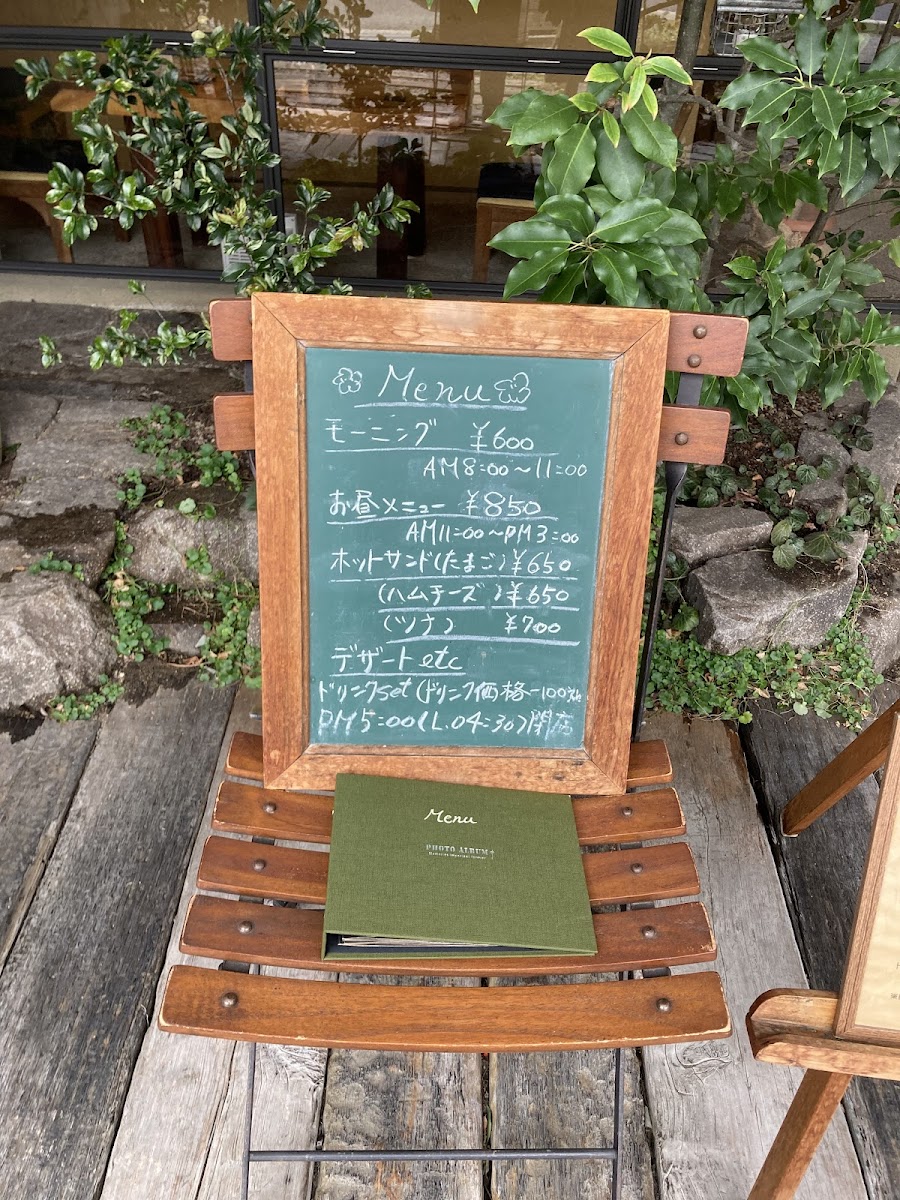 Menu
モーニング ¥600
AM8:00〜11:00
お昼メニュー ¥850
AM11:00〜PM3:00
ホットサンド(たまご)¥650
(ハムチーズ)¥650
(ツナ) ¥700
デザートetc
ドリンクset(ドリンク価格-100
PM5:00(L.O4:30)閉店
Menu
PHOTO ALBUM